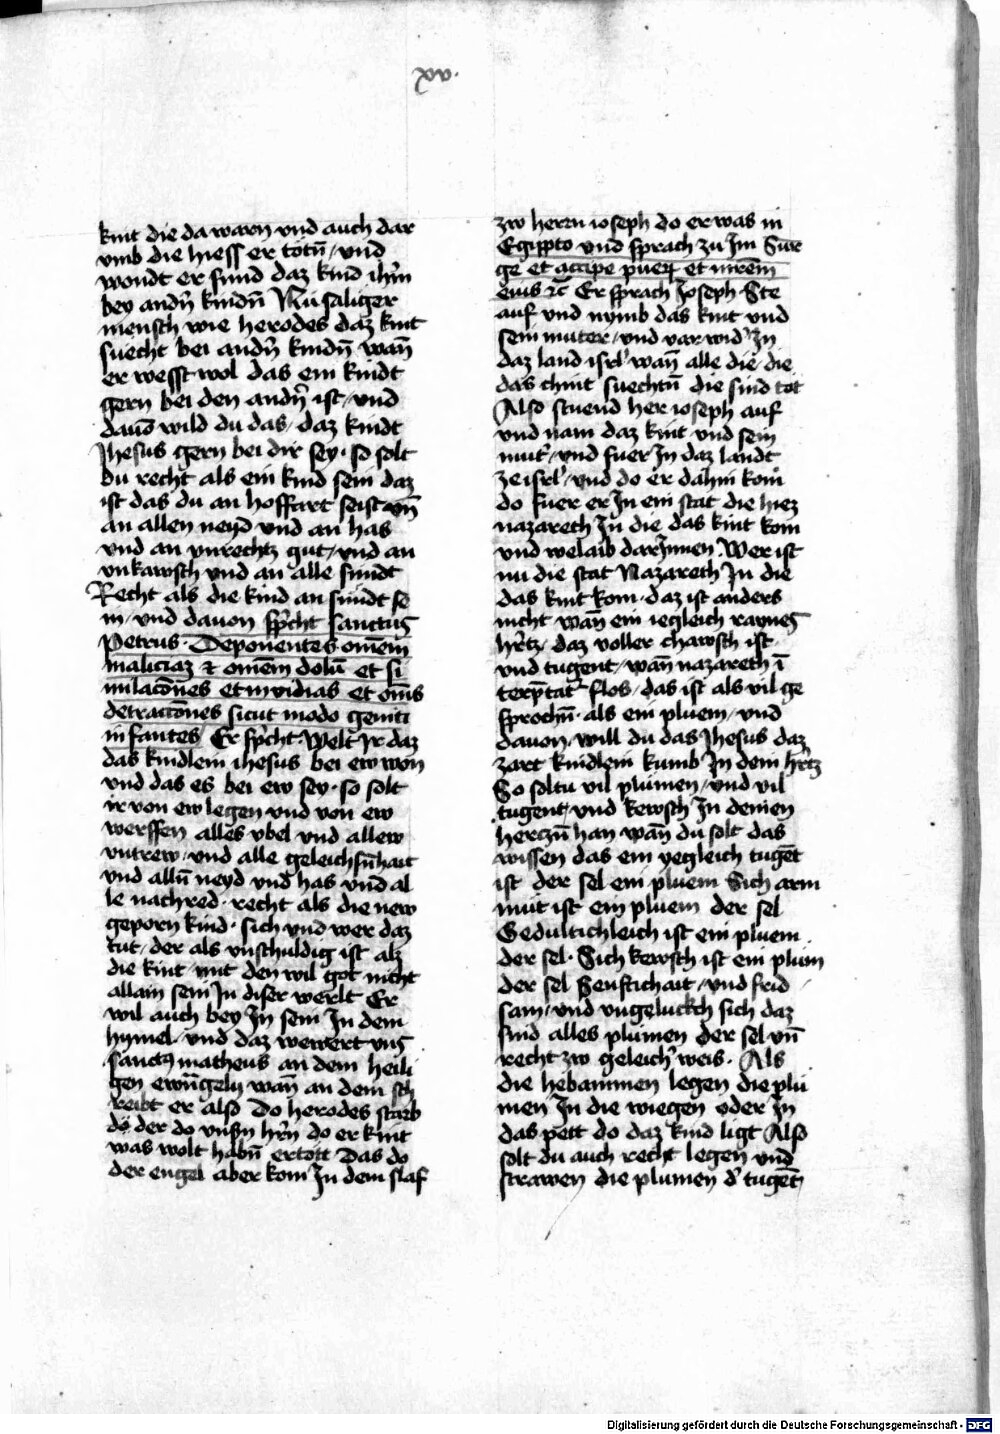 xv.
kint die da warn vnd auch dar
vmb die hiess er totn̄ / vnd
wondt er fund daz kind ih'm
bey andn̄ kindn̄ Nu saliger
mensch wie herodes daz kint
suecht bei andn̄ kindn̄ wan̄
er wesst wol das ein kindt
gern bei den andn̄ ist / vnd
dauō wild du das / daz kindt
Jhesus gern bei dir sey · so solt
du recht als ein kind sein daz
ist das du an hoffart seist vn̄
an allen neyd vnd an has
vnd an vnrechtz gut / vnd an
vnkawsch vnd an alle sundt
Recht als die kind an sundt se
in / vnd dauon sp'cht sanctus
Petrus · Deponentes omēm
maliciaz et omēm dolū et si
mulacōnes et invidias et om̄s
detraccōnes sicut modo geniti
infantes Er sp'cht · Welt Jr daz
das kindlein ihesus bei ew won
vnd das es bei ew sey · so solt
ir von ew legen vnd von ew
werffen alles vbel vnd allew
vntrew / vnd alle geleichsn̄hait
vnd alln̄ neyd vnd has vnd al
le nachred · recht als die new
geporn kind · sich vnd wer daz
tut / der als vnschuldig ist alz
die kint / mit den wil got nicht
allain sein Jn diser werlt Er
wil auch bey Jn sein Jn dem
hymel · vnd daz wewert vns
sanct9 matheus an dem heili
gen ewn̄gely wan̄ an dem sch
reibt er also Do herodes starb
do der do vnsn̄ hr̄n do er kint
was wolt habn̄ ertott Das do
der engel aber kom Jn dem slaf
zw herrn ioseph do er was in
Egippto vnd sprach zu Jm Sur
ge et accipe puerꝝ et mrēm
eius ⁊c̄ Er sprach Joseph · Ste
auf vnd nymb das kint vnd
sein muter / vnd var wid' Jn
daz land isrl' wan̄ alle die / die
das chint suechtn̄ die sind tot
Also stuend her ioseph auf
vnd nam daz kint vnd sein
mut' / vnd fuer Jn daz landt
ze isrl' / vnd do er dahin kom
do fuer er Jn ein stat die hiez
nazareth Jn die das kint kom
vnd welaib darJnnen · Wer ist
nu die stat Nazareth Jn die
das kint kom · daz ist anders
nicht wan̄ ein iegleich raynes
h'rtz / daz voller chawsch ist
vnd tugent / wan̄ nazareth ī
terp̄tat' flos / das ist als vil ge
sprochn̄ · als ein pluem / vnd
dauon / will du das Jhesus daz
zart kindlein kumb Jn dein h'rtz
So soltu vil plumen / vnd vil
tugent / vnd kewsch Jn deinen
herczn̄ han wan̄ du solt das
wissen das ein yegleich tugēt
ist der sel ein pluem Sich arm
mut ist ein pluem der sel
Gedultichleich ist ein pluem
der sel · Sich kewsch ist ein plum
der sel Senftichait / vnd frid
sam / vnd vngeluckch sich daz
sind alles plumen der sel vn̄
recht zw geleich' weis · Als
die hebammen legen die plu
men Jn die wiegen oder Jn
das pett do daz kind ligt Also
solt du auch recht legen vnd
strawen die plumen d' tugēt
Digitalisierung gefördert durch die Deutsche Forschungsgemeinschaft - DFG